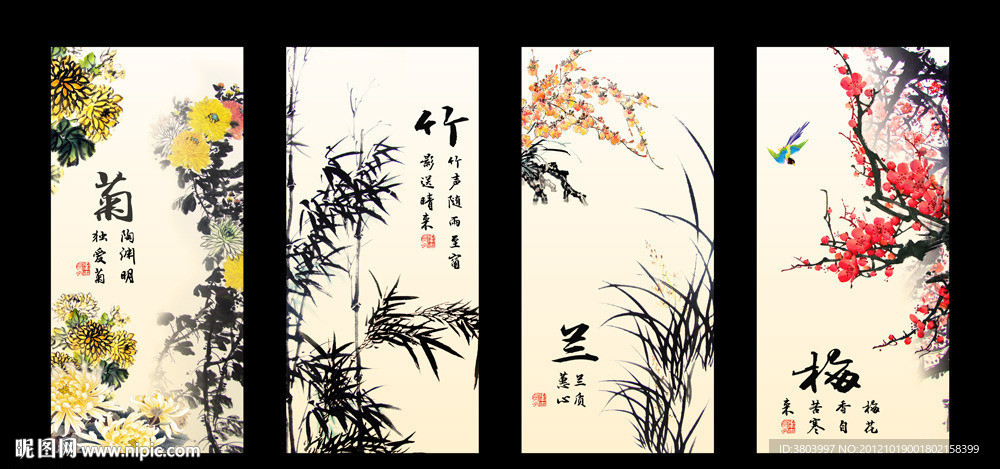 菊
陶渊明
独爱菊
竹
竹声随雨至窗
影送晴来
兰
兰质
蕙心
梅
梅花
香自
苦寒
来
昵图网 www.nipic.com
ID:3803997 NO:20121019001802158399